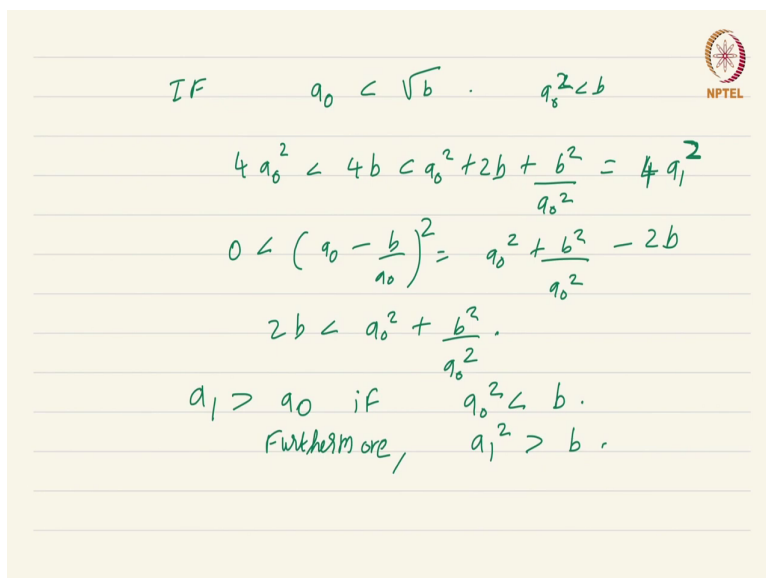 IF a₀ < √b . a₀² < b
NPTEL
4a₀² < 4b < a₀² + 2b + b²/a₀² = 4a₁²
0 < (a₀ - b/a₀)² = a₀² + b²/a₀² - 2b
2b < a₀² + b²/a₀² .
a₁ > a₀ if a₀² < b .
Furthermore, a₁² > b .